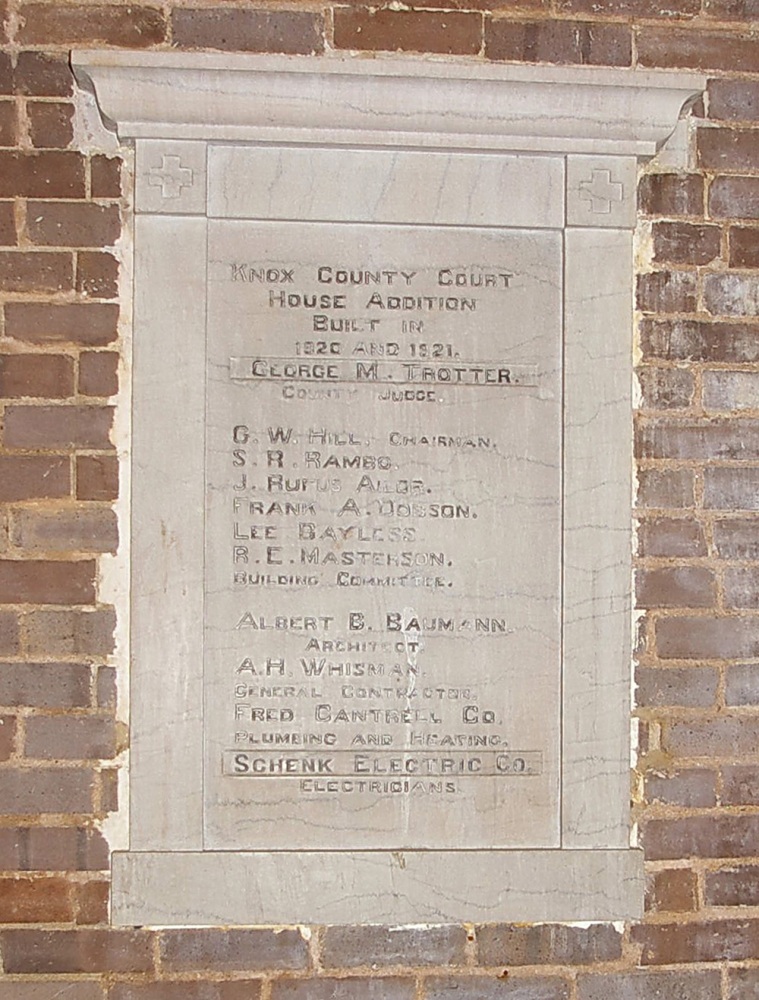 KNOX COUNTY COURT
HOUSE ADDITION
BUILT IN
1920 AND 1921.
GEORGE M. TROTTER.
COUNTY JUDGE.
G. W. HILL, CHAIRMAN.
S. R. RAMBO.
J. RUFUS AILOR.
FRANK A. DOBSON.
LEE BAYLESS
R. E. MASTERSON.
BUILDING COMMITTEE.
ALBERT B. BAUMANN.
ARCHITECT
A. H. WHISMAN.
GENERAL CONTRACTOR.
FRED CANTRELL CO.
PLUMBING AND HEATING.
SCHENK ELECTRIC CO.
ELECTRICIANS